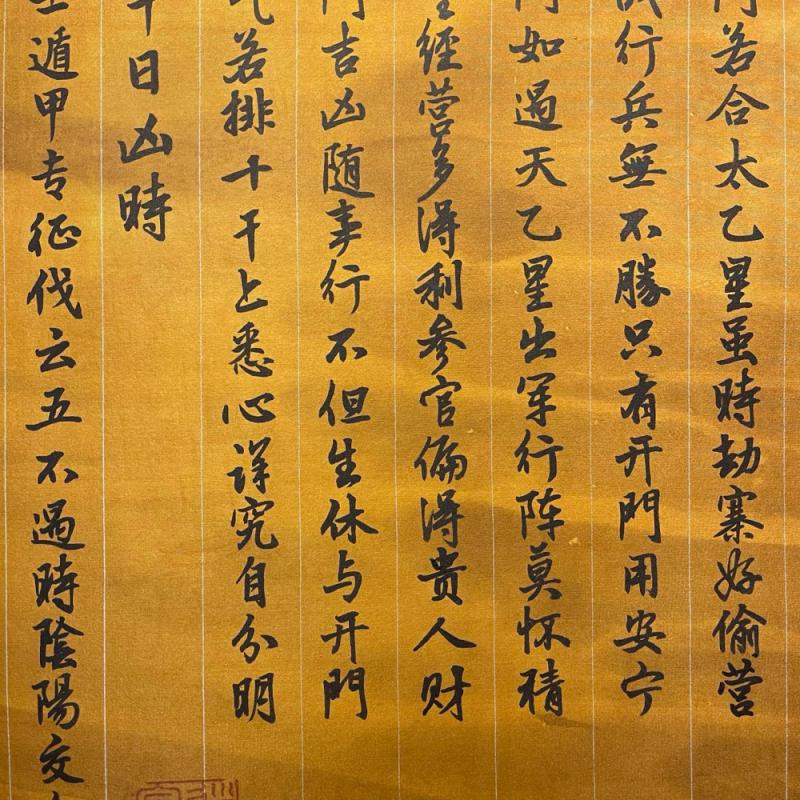 若合太乙星虽時劫寨好偷营
行兵無不勝只有开門用安宁
如遇天乙星出军行阵莫怀猜
經营多得利参官偏得贵人财
吉凶随事行不但生休与开門
若排十干上悉心详究自分明
日凶時
遁甲专征伐云五不遇時陰陽交